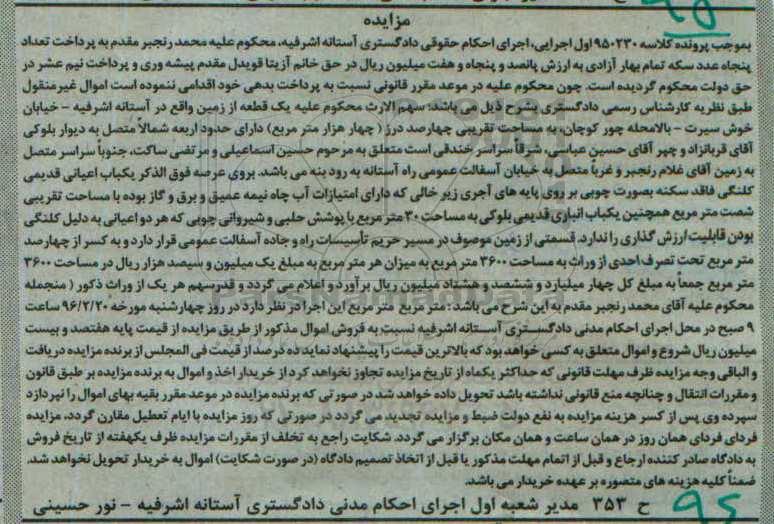 ۹۵
مزایده
بموجب پرونده کلاسه ۹۵۰۲۳۰ اول اجرایی، اجرای احکام حقوقی دادگستری آستانه اشرفیه، محکوم علیه محمد رنجبر مقدم به پرداخت تعداد
پنجاه عدد سکه تمام بهار آزادی به ارزش پانصد و پنجاه و هفت میلیون ریال در حق خانم آزیتا قویدل مقدم پیشه وری و پرداخت نیم عشر در
حق دولت محکوم گردیده است. چون محکوم علیه در موعد مقرر قانونی نسبت به پرداخت بدهی خود اقدامی ننموده است اموال غیرمنقول
طبق نظریه کارشناس رسمی دادگستری بشرح ذیل می باشد: سهم الارث محکوم علیه یک قطعه از زمین واقع در آستانه اشرفیه - خیابان
خوش سیرت - بالامحله چور کوچان، به مساحت تقریبی چهارصد درز ( چهار هزار متر مربع) دارای حدود اربعه شمالاً متصل به دیوار بلوکی
آقای قربانزاد و چپر آقای حسین عباسی، شرقاً سراسر خندقی است متعلق به مرحوم حسین اسماعیلی و مرتضی ساکت، جنوباً سراسر متصل
به زمین آقای غلام رنجبر و غرباً متصل به خیابان آسفالت عمومی راه آستانه به رود بنه می باشد. بروی عرصه فوق الذکر یکباب اعیانی قدیمی
کلنگی فاقد سکنه بصورت چوبی بر روی پایه های آجری زیر خالی که دارای امتیازات آب چاه نیمه عمیق و برق و گاز بوده با مساحت تقریبی
شصت متر مربع همچنین یکباب انباری قدیمی بلوکی به مساحت ۳۰ متر مربع با پوشش حلبی و شیروانی چوبی که هر دو اعیانی به دلیل کلنگی
بودن قابلیت ارزش گذاری را ندارد. قسمتی از زمین موصوف در مسیر حریم تأسیسات راه و جاده آسفالت عمومی قرار دارد و به کسر از چهارصد
متر مربع تحت تصرف احدی از وراث به مساحت ۳۶۰۰ متر مربع به میزان هر متر مربع به مبلغ یک میلیون و سیصد هزار ریال در مساحت ۳۶۰۰
متر مربع جمعاً به مبلغ کل چهار میلیارد و ششصد و هشتاد میلیون ریال برآورد و اعلام می گردد و قدرسهم هر یک از وراث ذکور ( منجمله
محکوم علیه آقای محمد رنجبر مقدم به این شرح می باشد : متر مربع متر مربع این اجرا در نظر دارد در روز چهارشنبه مورخه ۹۶/۲/۲۰ ساعت
۹ صبح در محل اجرای احکام مدنی دادگستری آستانه اشرفیه نسبت به فروش اموال مذکور از طریق مزایده از قیمت پایه هفتصد و بیست
میلیون ریال شروع و اموال متعلق به کسی خواهد بود که بالاترین قیمت را پیشنهاد نماید ده درصد از قیمت فی المجلس از برنده مزایده دریافت
و الباقی وجه مزایده ظرف مهلت قانونی که حداکثر یکماه از تاریخ مزایده تجاوز نخواهد کرد از خریدار اخذ و اموال به برنده مزایده بر طبق قانون
و مقررات انتقال و چنانچه منع قانونی نداشته باشد تحویل داده خواهد شد در صورتی که برنده مزایده در موعد مقرر بقیه بهای اموال را نپردازد
سپرده وی پس از کسر هزینه مزایده به نفع دولت ضبط و مزایده تجدید می گردد در صورتی که روز مزایده با ایام تعطیل مقارن گردد، مزایده
فردای فردای همان روز در همان ساعت و همان مکان برگزار می گردد. شکایت راجع به تخلف از مقررات مزایده ظرف یکهفته از تاریخ فروش
به دادگاه صادر کننده ارجاع و قبل از اتمام مهلت مذکور یا قبل از اتخاذ تصمیم دادگاه (در صورت شکایت) اموال به خریدار تحویل نخواهد شد.
ضمناً کلیه هزینه های متصوره بر عهده خریدار می باشد.
ح ۳۵۳ مدیر شعبه اول اجرای احکام مدنی دادگستری آستانه اشرفیه - نور حسینی
۹۵